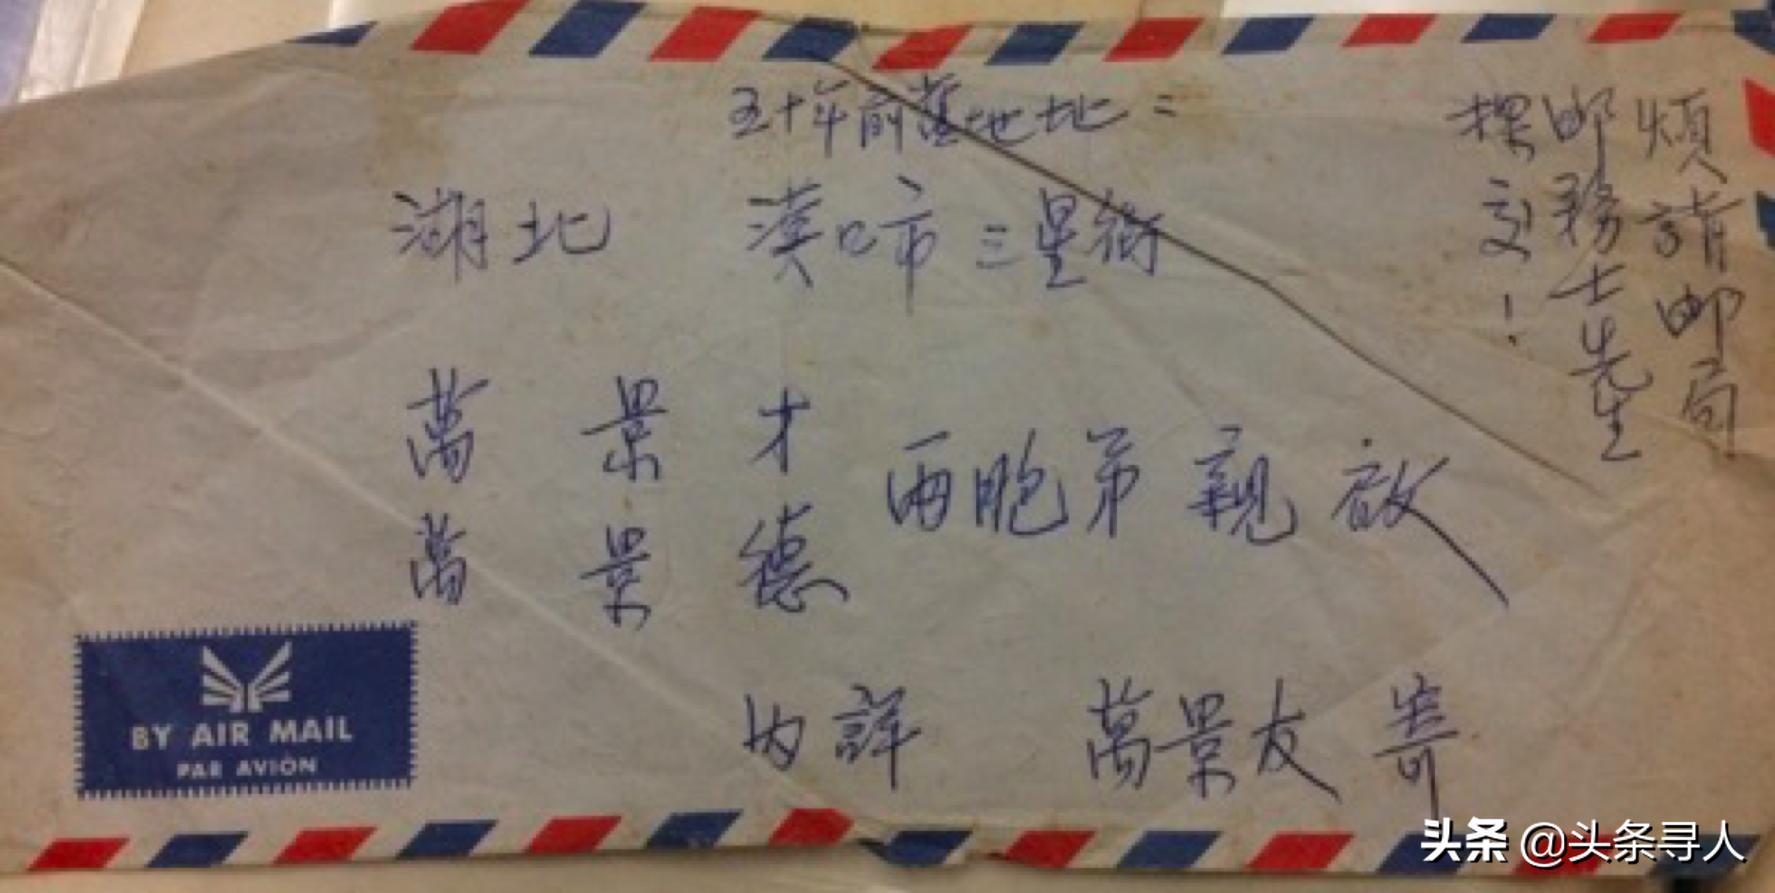 五十年前舊地址：
湖北 漢口市三星街
萬景才
萬景德
兩胞弟親啟
內詳 萬景友寄
煩請邮局
邮務士先生
探交！
BY AIR MAIL
PAR AVION
头条 @头条寻人